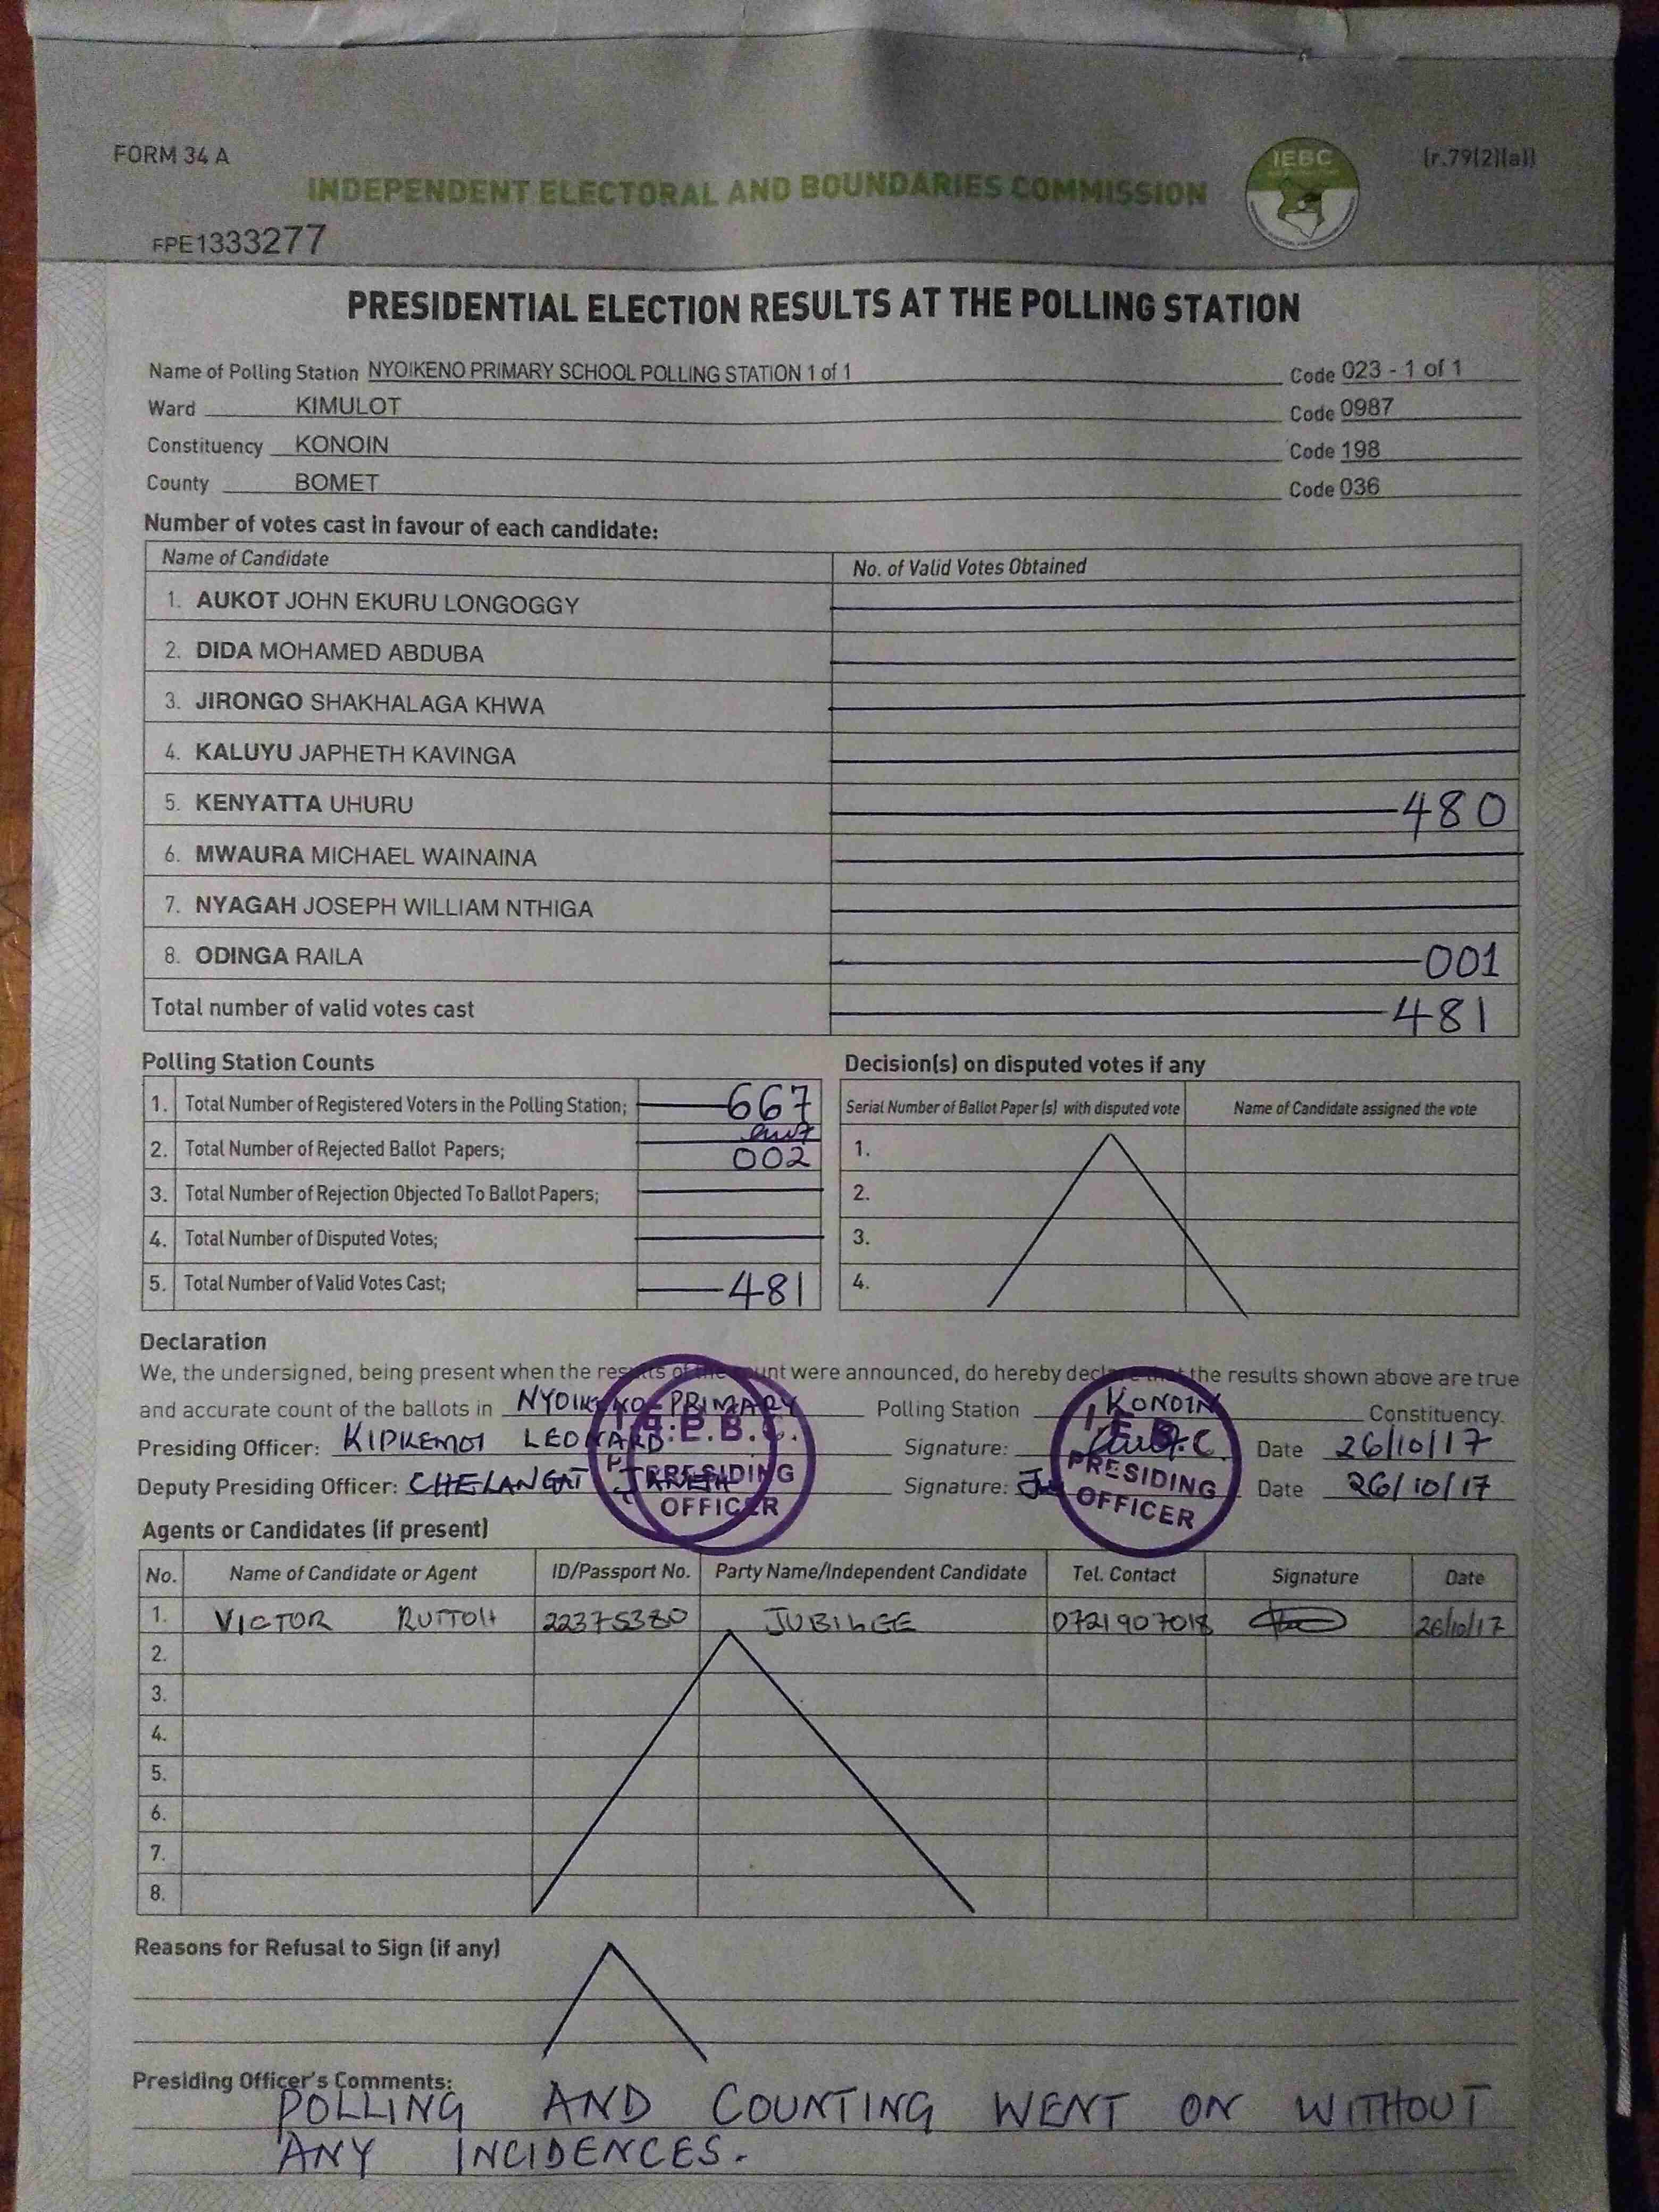 FORM 34 A
IEBC
(r.79(2)(a))
INDEPENDENT ELECTORAL AND BOUNDARIES COMMISSION
FPE1333277
PRESIDENTIAL ELECTION RESULTS AT THE POLLING STATION
Name of Polling Station NYOIKENO PRIMARY SCHOOL POLLING STATION 1 of 1 Code 023 - 1 of 1
Ward KIMULOT Code 0987
Constituency KONOIN Code 198
County BOMET Code 036
Number of votes cast in favour of each candidate:
Name of Candidate No. of Valid Votes Obtained
1. AUKOT JOHN EKURU LONGOGGY
2. DIDA MOHAMED ABDUBA
3. JIRONGO SHAKHALAGA KHWA
4. KALUYU JAPHETH KAVINGA
5. KENYATTA UHURU 480
6. MWAURA MICHAEL WAINAINA
7. NYAGAH JOSEPH WILLIAM NTHIGA
8. ODINGA RAILA 001
Total number of valid votes cast 481
Polling Station Counts
1. Total Number of Registered Voters in the Polling Station; 667
2. Total Number of Rejected Ballot Papers; 002
3. Total Number of Rejection Objected To Ballot Papers;
4. Total Number of Disputed Votes;
5. Total Number of Valid Votes Cast; 481
Decision(s) on disputed votes if any
Serial Number of Ballot Paper (s) with disputed vote Name of Candidate assigned the vote
1.
2.
3.
4.
Declaration
We, the undersigned, being present when the results of the count were announced, do hereby declare that the results shown above are true
and accurate count of the ballots in NYOIKENO PRIMARY Polling Station KONOIN Constituency.
Presiding Officer: KIPKEMOI LEONARD Signature: Date 26/10/17
Deputy Presiding Officer: CHELANGAT JANETH Signature: Date 26/10/17
I.E.B.C.
PRESIDING
OFFICER
I.E.B.C
PRESIDING
OFFICER
Agents or Candidates (if present)
No. Name of Candidate or Agent ID/Passport No. Party Name/Independent Candidate Tel. Contact Signature Date
1. VICTOR RUTTOH 22375380 JUBILEE 0721907018 26/10/17
2.
3.
4.
5.
6.
7.
8.
Reasons for Refusal to Sign (if any)
Presiding Officer's Comments:
POLLING AND COUNTING WENT ON WITHOUT
ANY INCIDENCES.